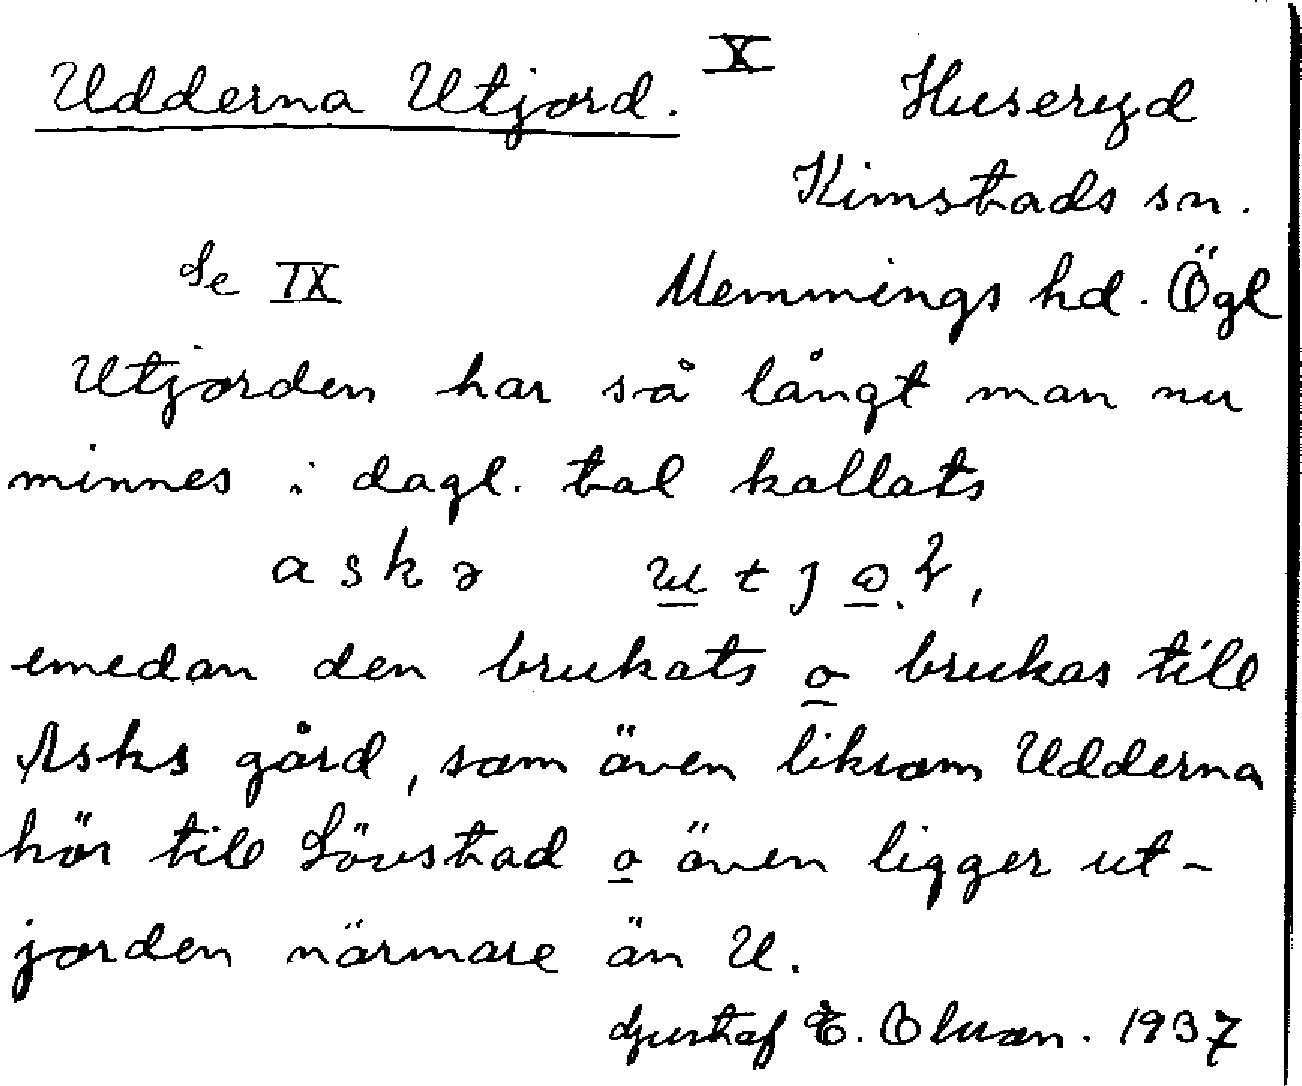 Udderna Utjord. X Huseryd
Kimstads sn.
Se IX Memmings hd. Ögl
Utjorden har så långt man nu
minnes i dagl. tal kallats
a s k ə u t j o
emedan den brukats o brukas till
Asks gård, som även liksom Udderna
hör till Lövstad o även ligger ut-
jorden närmare än U.
Gustaf E. Olsson. 1937